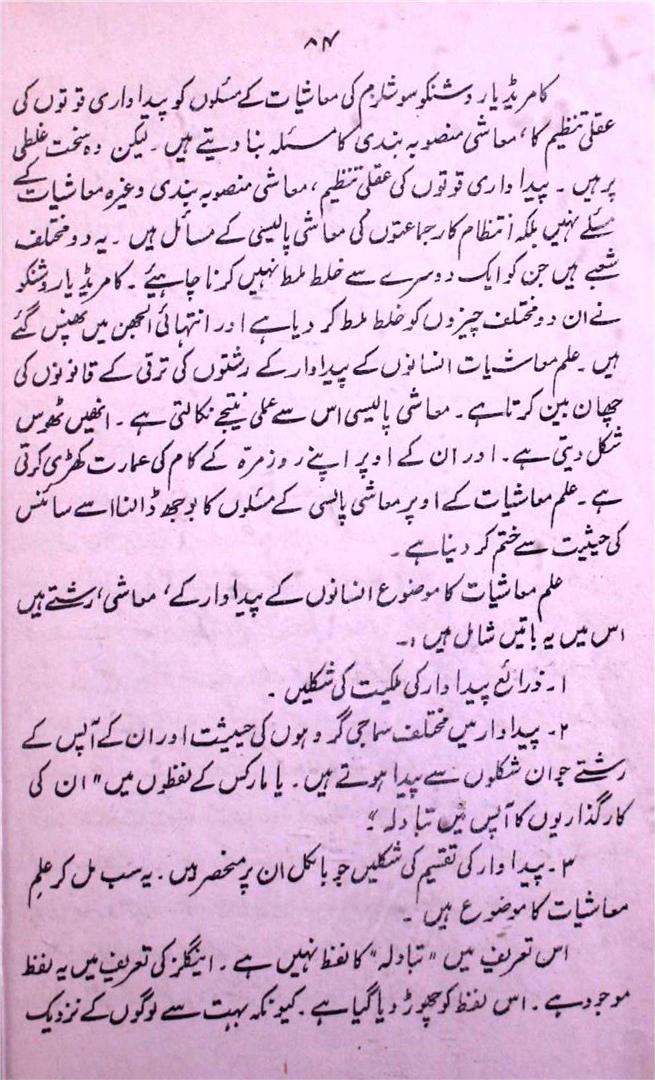 ۸۴
کامریڈ یاروشنکو سوشلزم کی معاشیات کے مسئلوں کو پیداواری قوتوں کی
عقلی تنظیم کا، معاشی منصوبہ بندی کا مسئلہ بنا دیتے ہیں۔ لیکن وہ سخت غلطی
پر ہیں۔ پیداواری قوتوں کی عقلی تنظیم، معاشی منصوبہ بندی وغیرہ معاشیات کے
مسئلے نہیں بلکہ انتظام کار جماعتوں کی معاشی پالیسی کے مسائل ہیں۔ یہ دو مختلف
شعبے ہیں جن کو ایک دوسرے سے خلط ملط نہیں کرنا چاہیئے۔ کامریڈ یاروشنکو
نے ان دو مختلف چیزوں کو خلط ملط کر دیا ہے اور انتہائی الجھن میں پھنس گئے
ہیں۔ علم معاشیات انسانوں کے پیداوار کے رشتوں کی ترقی کے قانونوں کی
چھان بین کرتا ہے۔ معاشی پالیسی اس سے عملی نتیجے نکالتی ہے۔ انھیں ٹھوس
شکل دیتی ہے۔ اور ان کے اوپر اپنے روزمرّہ کے کام کی عمارت کھڑی کرتی
ہے۔ علم معاشیات کے اوپر معاشی پالسی کے مسئلوں کا بوجھ ڈالنا اسے سائنس
کی حیثیت سے ختم کر دینا ہے۔
علم معاشیات کا موضوع انسانوں کے پیداوار کے، معاشی، رشتے ہیں
اس میں یہ باتیں شامل ہیں:۔
۱۔ ذرائع پیداوار کی ملکیت کی شکلیں۔
۲۔ پیداوار میں مختلف سماجی گروہوں کی حیثیت اور ان کے آپس کے
رشتے جو ان شکلوں سے پیدا ہوتے ہیں۔ یا مارکس کے لفظوں میں "ان کی
کارگذاریوں کا آپس میں تبادلہ"۔
۳۔ پیداوار کی تقسیم کی شکلیں جو بالکل ان پر منحصر ہیں۔ یہ سب مل کر علمِ
معاشیات کا موضوع ہیں۔
اس تعریف میں "تبادلہ" کا لفظ نہیں ہے۔ اینگلز کی تعریف میں یہ لفظ
موجود ہے۔ اس لفظ کو چھوڑ دیا گیا ہے۔ کیونکہ بہت سے لوگوں کے نزدیک